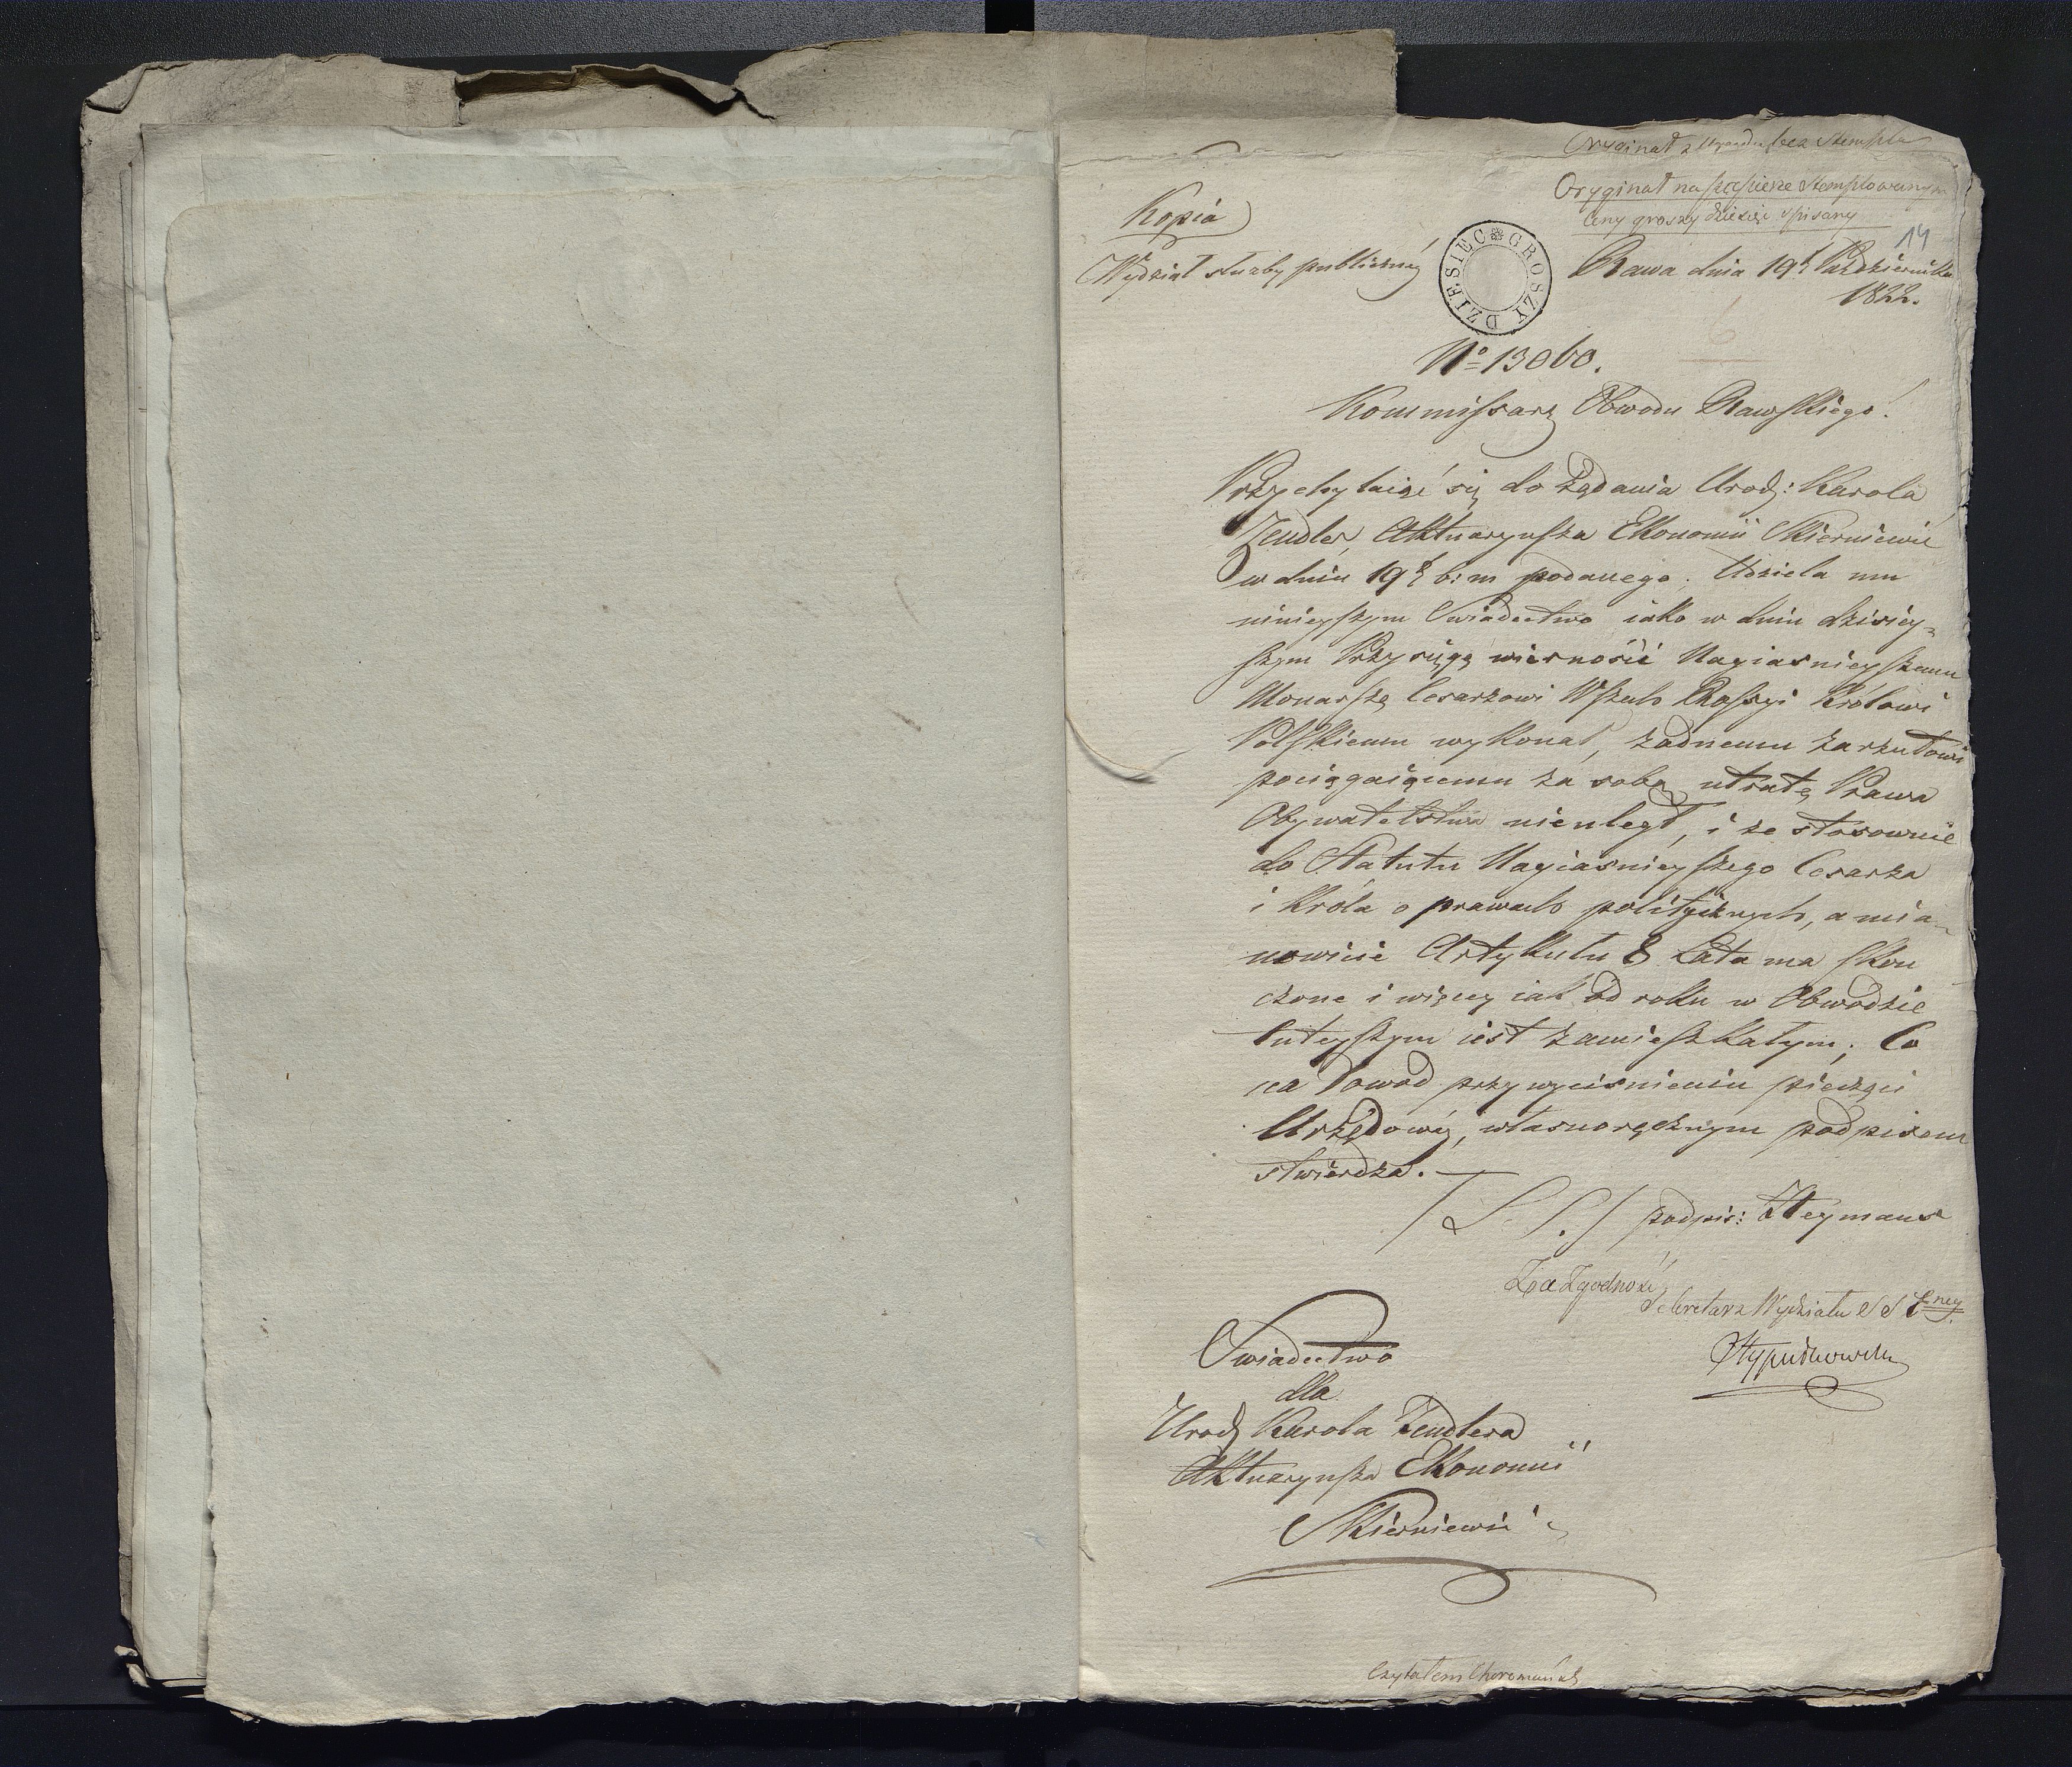 Oryginał z Urzędu bez Stempla
Oryginał na papierze Stemplowanym
Ceny groszy dziesięć spisany
14
Kopia
Wydział służby publiczney
DZIESIEC GROSZY
Rawa dnia 19º Października
1822.
6
Nº 13060.
Kommissarz Obwodu Rawskiego.
Przychylaiąc się do żądania Urodz: Karola
Zeudler, Aktuaryusza Ekonomii Skierniewic
w dniu 19º b: m podanego. Udziela mu
ninieyszym Swiadectwo iako w dniu dzisiey=
szym Przysięgę wierności Nayiasnieyszemu
Monarsze Cesarzowi Wszech Rossyi Królowi
Polskiemu wykonał, żadnemu zarzutowi
pociągaiącemu za sobą utratę Prawa
Obywatelstwa nieuległ, i że stosownie
do Statutu Nayiasnieyszego Cesarza
i Króla o prawach politycznych, a mia-
nowicie Artykułu 8 Lata ma skoń
czone i więcey iak od roku w Obwodzie
tuteyszym iest zamieszkałym. Co
na dowod przy wyciśnieniu pieczęci
Urzędowey, własnoręcznym podpisem
stwierdza. —
/ L. S. / podpis: Heymans
Za Zgodność
Sekretarz Wydziału S P ney
Swiadectwo
dla
Urodz Karola Zeudlera
Aktuaryusza Ekonomii
Skierniewic
Czytałem Choromański